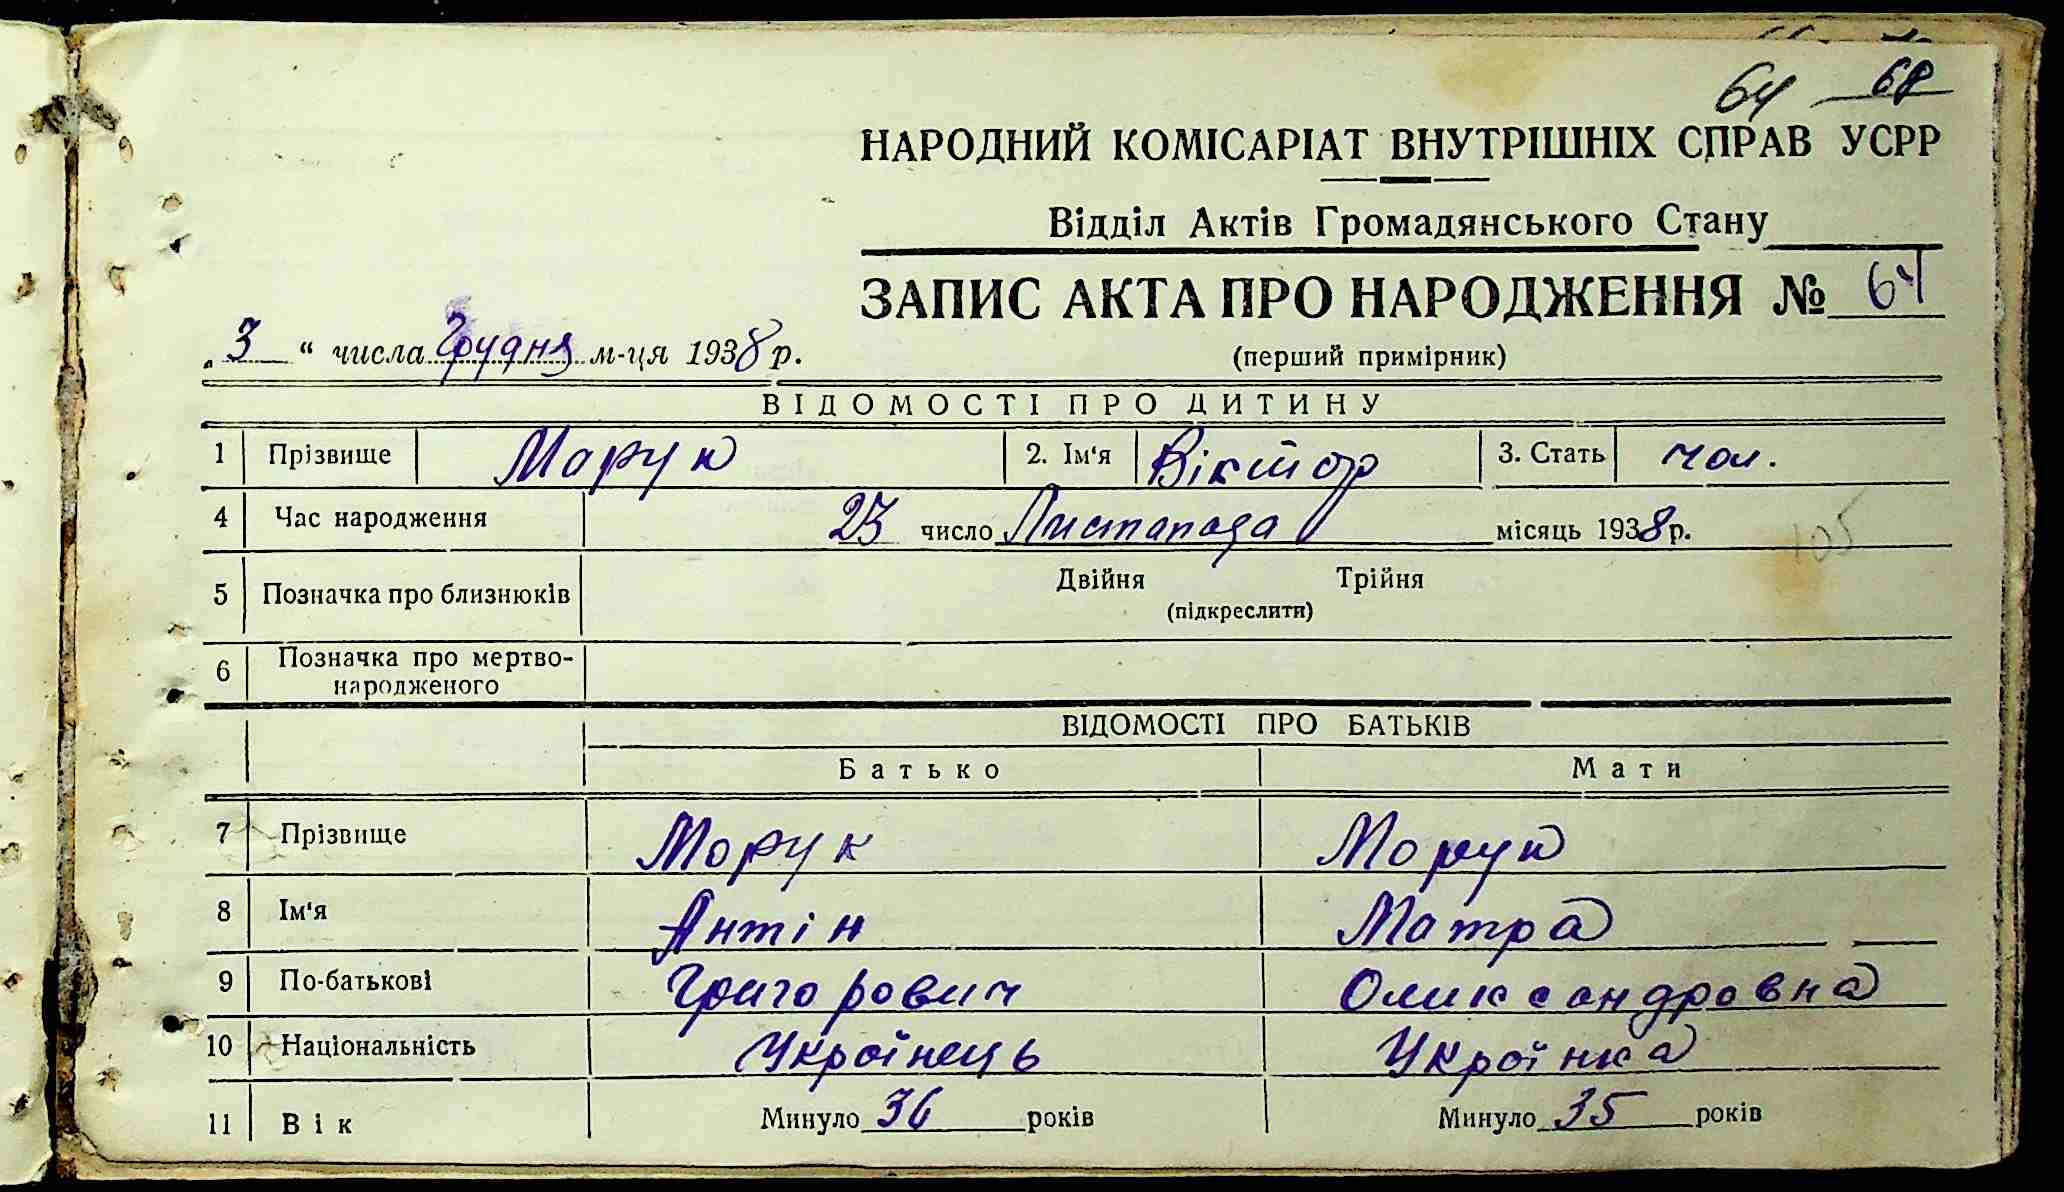 64 68
НАРОДНИЙ КОМІСАРІАТ ВНУТРІШНІХ СПРАВ УСРР
Відділ Актів Громадянського Стану
ЗАПИС АКТА ПРО НАРОДЖЕННЯ № 64
„3“ числа Грудня м-ця 1938 р.
(перший примірник)
ВІДОМОСТІ ПРО ДИТИНУ
1 Прізвище Морук 2. Ім'я Віктор 3. Стать чол.
4 Час народження 23 число Листапада місяць 1938 р.
105
5 Позначка про близнюків Двійня Трійня
(підкреслити)
6 Позначка про мертво-
народженого
ВІДОМОСТІ ПРО БАТЬКІВ
Батько Мати
7 Прізвище Морук Морук
8 Ім'я Антін Мотра
9 По-батькові Григорович Олександровна
10 Національність Українець Українка
11 Вік Минуло 36 років Минуло 35 років